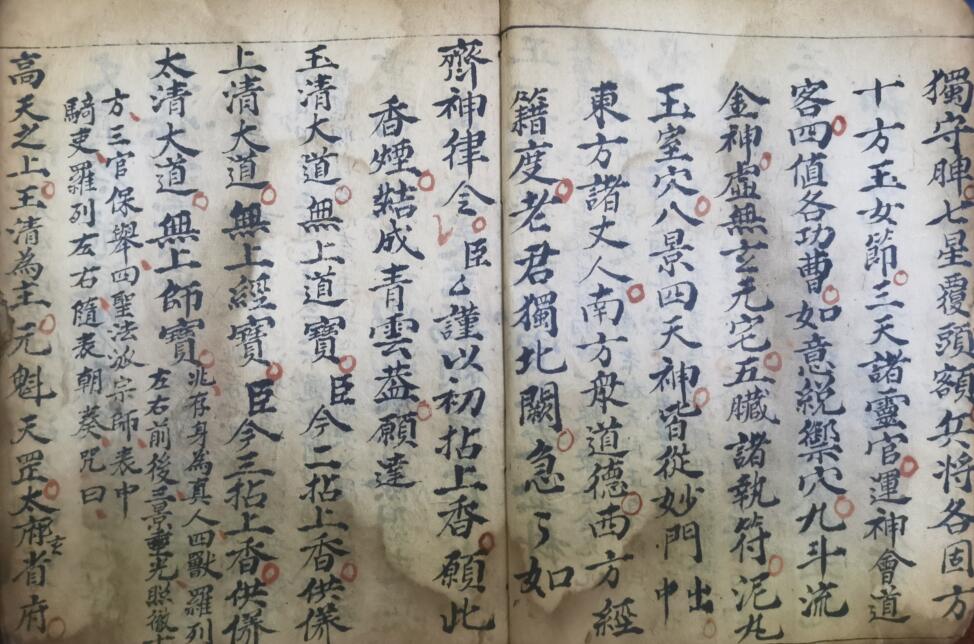 獨守脾七星覆頭額兵將各固方
十方玉女節三天諸靈官運神會道
客四值各功曹如意綂禦穴九斗流
金神虛無玄元宅五臟諸執符泥丸
玉室穴八景四天神皆從妙門中出
東方諸丈人南方眾道德西方經
籍度老君獨北闕急々如
齊神律令臣厶謹以初拈上香願此
香煙結成青雲葢願達
玉清大道無上道寶臣今二拈上香供養
上清大道無上經寶臣今三拈上香供養
太清大道無上師寶兆存身為真人四獸羅列
左右前後三景垂光照徹
方三官保舉四聖法派宗師表申
騎吏羅列左右隨表朝奏咒曰
高天之上玉清為主元魁天罡太玄省府